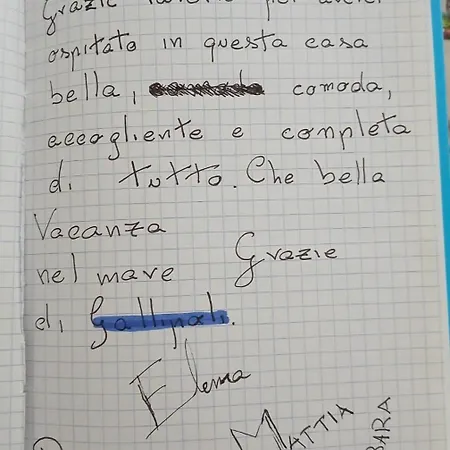 Grazie
ospitato in questa casa
bella, comoda,
accogliente e completa
di tutto. Che bella
Vacanza
nel mare Grazie
di Gallipoli.
Elena
MATTIA
BARA